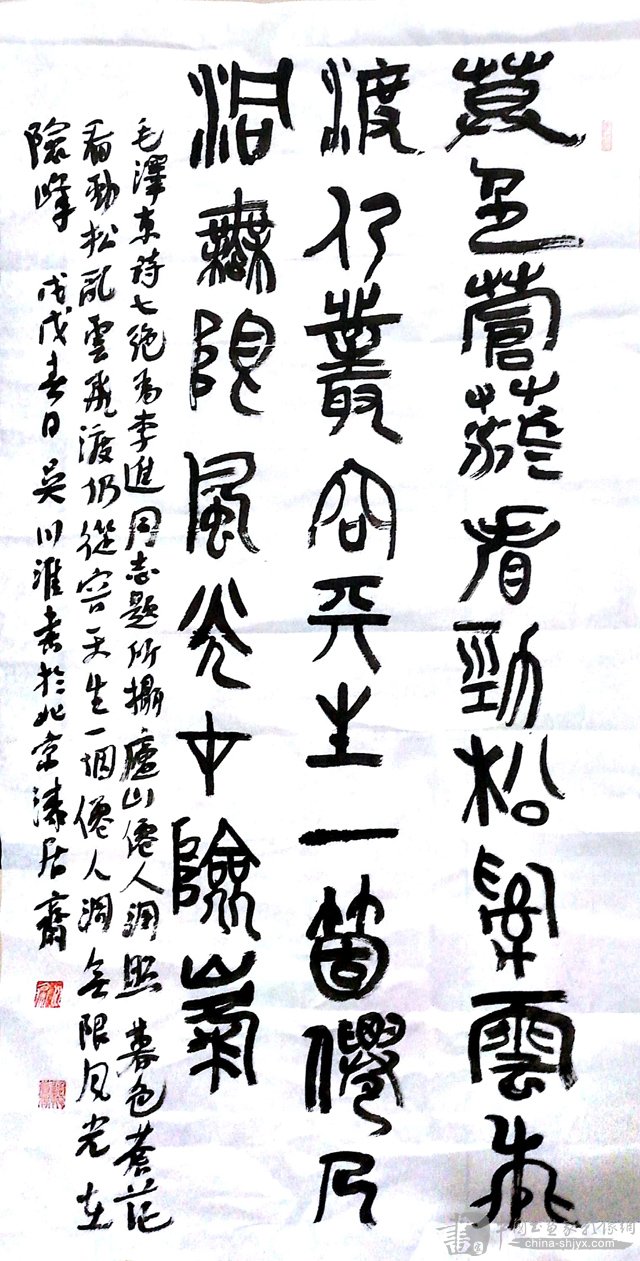 暮色蒼茫看勁松亂雲飛
渡仍叢容天生一箇僊人
洞無限風光在險峯
毛澤東詩七絕為李進同志題所攝廬山僊人洞照 暮色蒼茫
看勁松亂雲飛渡仍從容天生一個僊人洞無限風光在
險峰 戊戌春日吴川淮書於北京濤居齋
china-shjyx.com